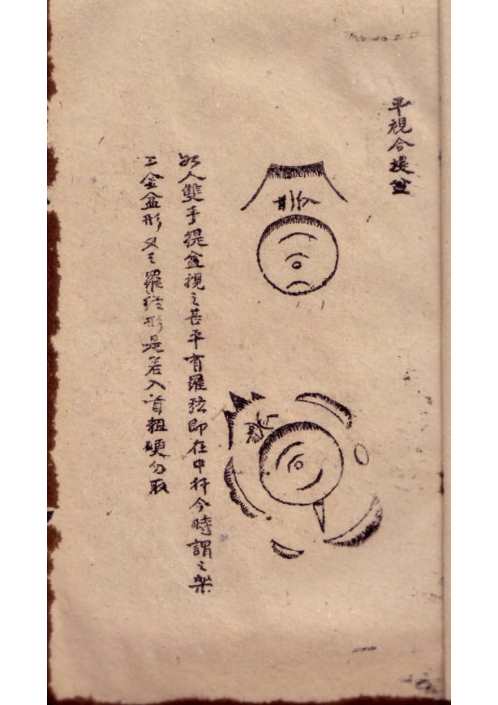 平視合提盆
如人雙手提盆視之甚平有羅弦即在中杆今時謂之架
二金盆形又之羅弦形是若入首粗硬勿取